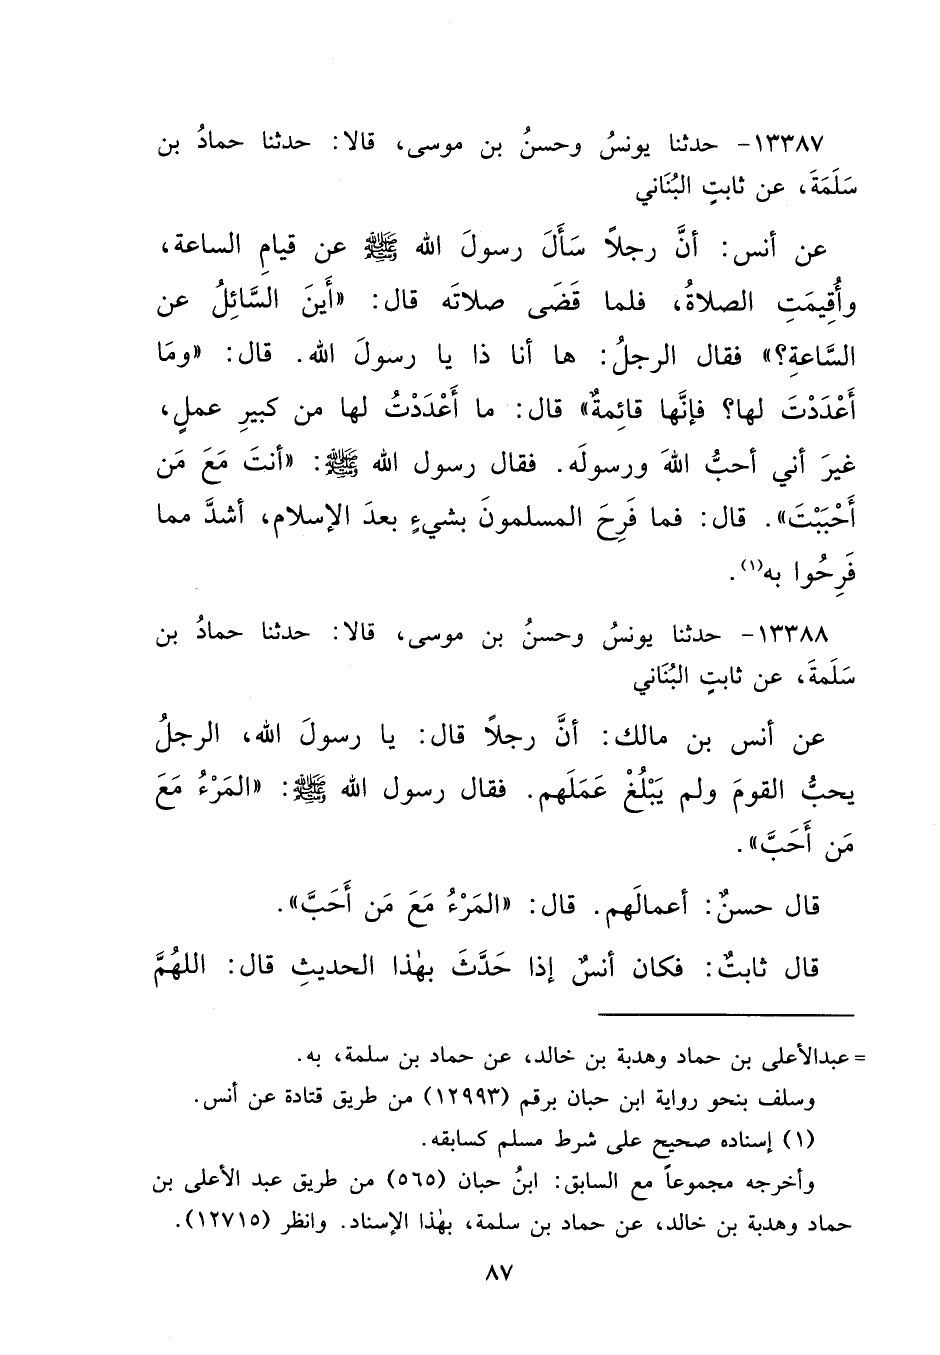 ١٣٣٨٧- حدثنا يونسُ وحسنُ بن موسى، قالا: حدثنا حمادُ بن
سَلَمَةَ، عن ثابتٍ البُنَاني
عن أنس: أنَّ رجلاً سَأَلَ رسولَ الله ﷺ عن قيامِ الساعة،
وأُقِيمَتِ الصلاةُ، فلما قَضَى صلاتَه قال: «أَينَ السَّائِلُ عن
السَّاعةِ؟» فقال الرجلُ: ها أنا ذا يا رسولَ الله. قال: «ومَا
أَعْدَدْتَ لها؟ فإنَّها قائِمةٌ» قال: ما أَعْدَدْتُ لها من كبيرِ عملٍ،
غيرَ أني أحبُّ اللهَ ورسولَه. فقال رسول الله ﷺ: «أنتَ مَعَ مَن
أَحْبَبْتَ». قال: فما فَرِحَ المسلمونَ بشيءٍ بعدَ الإسلام، أشدَّ مما
فَرِحُوا به(١).
١٣٣٨٨- حدثنا يونسُ وحسنُ بن موسى، قالا: حدثنا حمادُ بن
سَلَمةَ، عن ثابتٍ البُنَاني
عن أنس بن مالك: أنَّ رجلاً قال: يا رسولَ الله، الرجلُ
يحبُّ القومَ ولم يَبْلُغْ عَمَلَهم. فقال رسول الله ﷺ: «المَرْءُ مَعَ
مَن أَحَبَّ».
قال حسنٌ: أعمالَهم. قال: «المَرْءُ مَعَ مَن أَحَبَّ».
قال ثابتٌ: فكان أنسٌ إذا حَدَّثَ بهٰذا الحديثِ قال: اللهُمَّ
= عبدالأعلى بن حماد وهدبة بن خالد، عن حماد بن سلمة، به.
وسلف بنحو رواية ابن حبان برقم (١٢٩٩٣) من طريق قتادة عن أنس.
(١) إسناده صحيح على شرط مسلم كسابقه.
وأخرجه مجموعاً مع السابق: ابنُ حبان (٥٦٥) من طريق عبد الأعلى بن
حماد وهدبة بن خالد، عن حماد بن سلمة، بهٰذا الإسناد. وانظر (١٢٧١٥).
٨٧